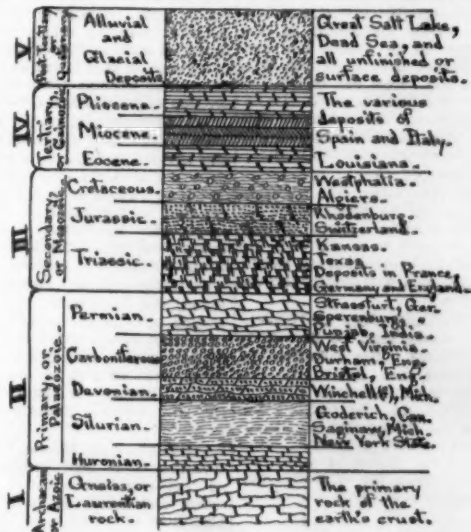 V
Post Tertiary, or
Quaternary.
Alluvial
and
Glacial
Deposits
Great Salt Lake,
Dead Sea, and
all unfinished or
surface deposits.
IV
Tertiary,
or Cainozoic.
Pliocene.
Miocene.
Eocene.
The various
deposits of
Spain and Italy.
Louisiana.
III
Secondary,
or Mesozoic.
Cretaceous.
Jurassic.
Triassic.
Westphalia.
Algiers.
Rhodenburg.
Switzerland.
Kansas.
Texas.
Deposits in France,
Germany and England.
II
Primary, or
Palaeozoic.
Permian.
Carboniferous
Davonian.
Silurian.
Huronian.
Strassfurt, Ger.
Sperenburg, "
Punjab, India.
West Virginia.
Durham, Eng.
Bristol, Eng.
Winchell(?), Mich.
Goderich, Can.
Saginaw, Mich.
New York State.
I
Archæan
or Azoic
Gneiss, or
Laurentian
rock.
The primary
rock of the
earth's crust.